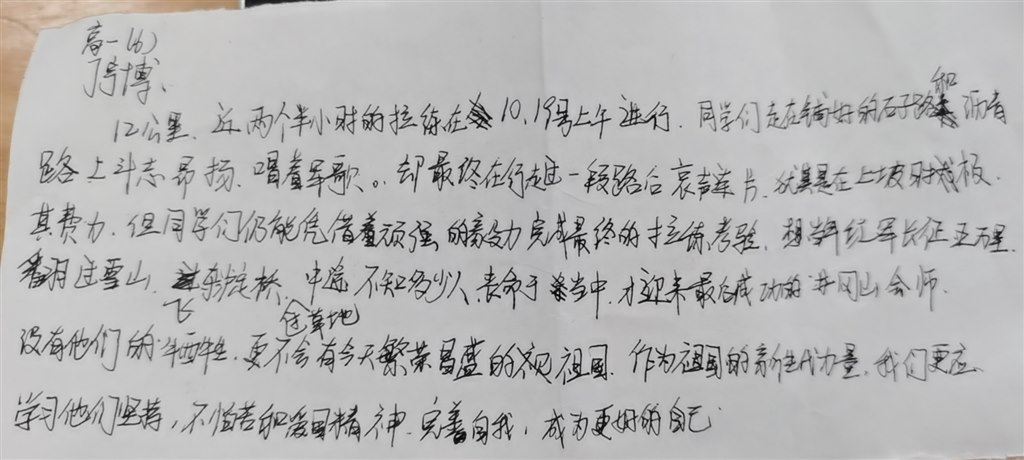 高一(6)
博
12公里、近两个半小时的拉练在10.19号上午进行.同学们走在铺好的石子路和沥青
路上斗志昂扬、唱着军歌。却最终在行走一段路后哀声连片.尤其是在上坡时成极
其费力.但同学们仍能凭借着顽强的毅力完成最终的拉练考验.想当年红军长征五万里.
翻过雪山.飞夺泸定桥.过草地中途不知多少人丧命于当中.才迎来最后成功的井冈山会师.
没有他们的牺牲.更不会有今天繁荣昌盛的祖国.作为祖国的新生代力量.我们更应
学习他们坚持,不怕苦和爱国精神.完善自我,成为更好的自己